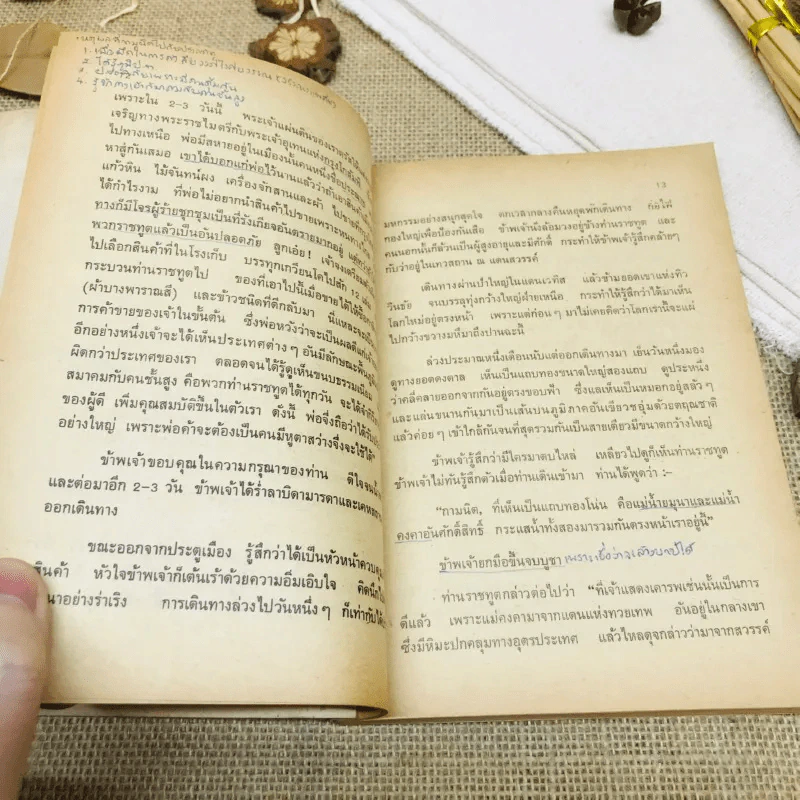 เพราะใน 2-3 วันนี้ พระเจ้าแผ่นดินของเราตรัสให้
เจริญทางพระราชไมตรีกับพระเจ้าอุเทนแห่งกรุงโกสัมพี
ไปทางเหนือ พ่อมีสหายอยู่ในเมืองนั้นคนหนึ่งชื่อ
หาสู่กันเสมอ เขาได้บอกแก่พ่อไว้นานแล้วว่าถ้าเอาสินค้า
แก้วหิน ไม้จันทน์ผง เครื่องจักสานและผ้า ไปขายที่
ได้กำไรงาม ที่พ่อไม่อยากนำสินค้าไปขายเพราะหนทาง
ทางก็มีโจรผู้ร้ายชุกชุมเป็นที่รังเกียจอันตรายมากอยู่ แต่
พวกราชทูตแล้วเป็นอันปลอดภัย ลูกเอ๋ย! เจ้าจงเตรียมตัว
ไปเลือกสินค้าที่ในโรงเก็บ บรรทุกเกวียนโคไปสัก 12 เล่ม
กระบวนท่านราชทูตไป ของที่เอาไปนี้เมื่อขายได้ให้ซื้อ
(ผ้าบางพาราณสี) และข้าวชนิดที่ดีกลับมา นี่แหละจะเป็น
การค้าขายของเจ้าในขั้นต้น ซึ่งพ่อหวังว่าจะเป็นผลดีแก่
อีกอย่างหนึ่งเจ้าจะได้เห็นประเทศต่างๆ อันมีลักษณะพื้นภูมิ
ผิดกว่าประเทศของเรา ตลอดจนได้รู้ดูเห็นขนบธรรมเนียม
สมาคมกับคนชั้นสูง คือพวกท่านราชทูตได้ทุกวัน จะได้จำ
ของผู้ดี เพิ่มคุณสมบัติขึ้นในตัวเรา ดั่งนี้ พ่อจึ่งถือว่าได้
อย่างใหญ่ เพราะพ่อค้าจะต้องเป็นคนมีหูตาสว่างจึ่งจะใช้ได้"
ข้าพเจ้าขอบคุณในความกรุณาของท่าน ดีใจจน
และต่อมาอีก 2-3 วัน ข้าพเจ้าได้ร่ำลาบิดามารดาและ
ออกเดินทาง
ขณะออกจากประตูเมือง รู้สึกว่าได้เป็นหัวหน้าควบคุม
สินค้า หัวใจข้าพเจ้าก็เต้นเร้าด้วยความอิ่มเอิบใจ คิดนึก
มาอย่างร่าเริง การเดินทางล่วงไปวันหนึ่งๆ ก็เท่ากับได้
13
มหกรรมอย่างสนุกสุดใจ ตกเวลากลางคืนหยุดพักเดินทาง ก่อไฟ
กองใหญ่เพื่อป้องกันเสือ ข้าพเจ้านั่งล้อมวงอยู่ข้างท่านราชทูต และ
คนนอกนั้นก็ล้วนเป็นผู้สูงอายุและมีศักดิ์ กระทำให้ข้าพเจ้ารู้สึกคล้ายๆ
กับว่าอยู่ในเทวสถาน ณ แดนสวรรค์
เดินทางผ่านป่าใหญ่ในแดนเวทิส แล้วข้ามยอดเขาแห่งทิว
วินธัย จนบรรลุทุ่งกว้างใหญ่ฝ่ายเหนือ กระทำให้รู้สึกว่าได้มาเห็น
โลกใหม่อยู่ตรงหน้า เพราะแต่ก่อนๆ มาไม่เคยคิดว่าโลกเรานี้จะแผ่
ไปกว้างขวางมหึมาถึงปานฉะนี้
ล่วงประมาณหนึ่งเดือนนับแต่ออกเดินทางมา เย็นวันหนึ่งมอง
ดูทางยอดดงตาล เห็นเป็นแถบทองขนาดใหญ่สองแถบ ดูประหนึ่ง
ว่าคลี่คลายออกจากกันอยู่ตรงขอบฟ้า ซึ่งแลเห็นเป็นหมอกอยู่สลัวๆ
และแล่นขนานกันมาเป็นเส้นบนภูมิภาคอันเขียวชอุ่มด้วยดฤณชาติ
แล้วค่อยๆ เข้าใกล้กันจนที่สุดรวมกันเป็นสายเดียวมีขนาดกว้างใหญ่
ข้าพเจ้ารู้สึกว่ามีใครมาตบไหล่ เหลียวไปดูก็เห็นท่านราชทูต
ข้าพเจ้าไม่ทันรู้สึกตัวเมื่อท่านเดินเข้ามา ท่านได้พูดว่า :-
"กามนิต, ที่เห็นเป็นแถบทองโน่น คือแม่น้ำยมุนาและแม่น้ำ
คงคาอันศักดิ์สิทธิ์ กระแสน้ำทั้งสองมารวมกันตรงหน้าเราอยู่นี้"
ข้าพเจ้ายกมือขึ้นจบบูชา
ท่านราชทูตกล่าวต่อไปว่า "ที่เจ้าแสดงเคารพเช่นนั้นเป็นการ
ดีแล้ว เพราะแม่คงคามาจากแดนแห่งทวยเทพ อันอยู่ในกลางเขา
ซึ่งมีหิมะปกคลุมทางอุตรประเทศ แล้วไหลดุจกล่าวว่ามาจากสวรรค์